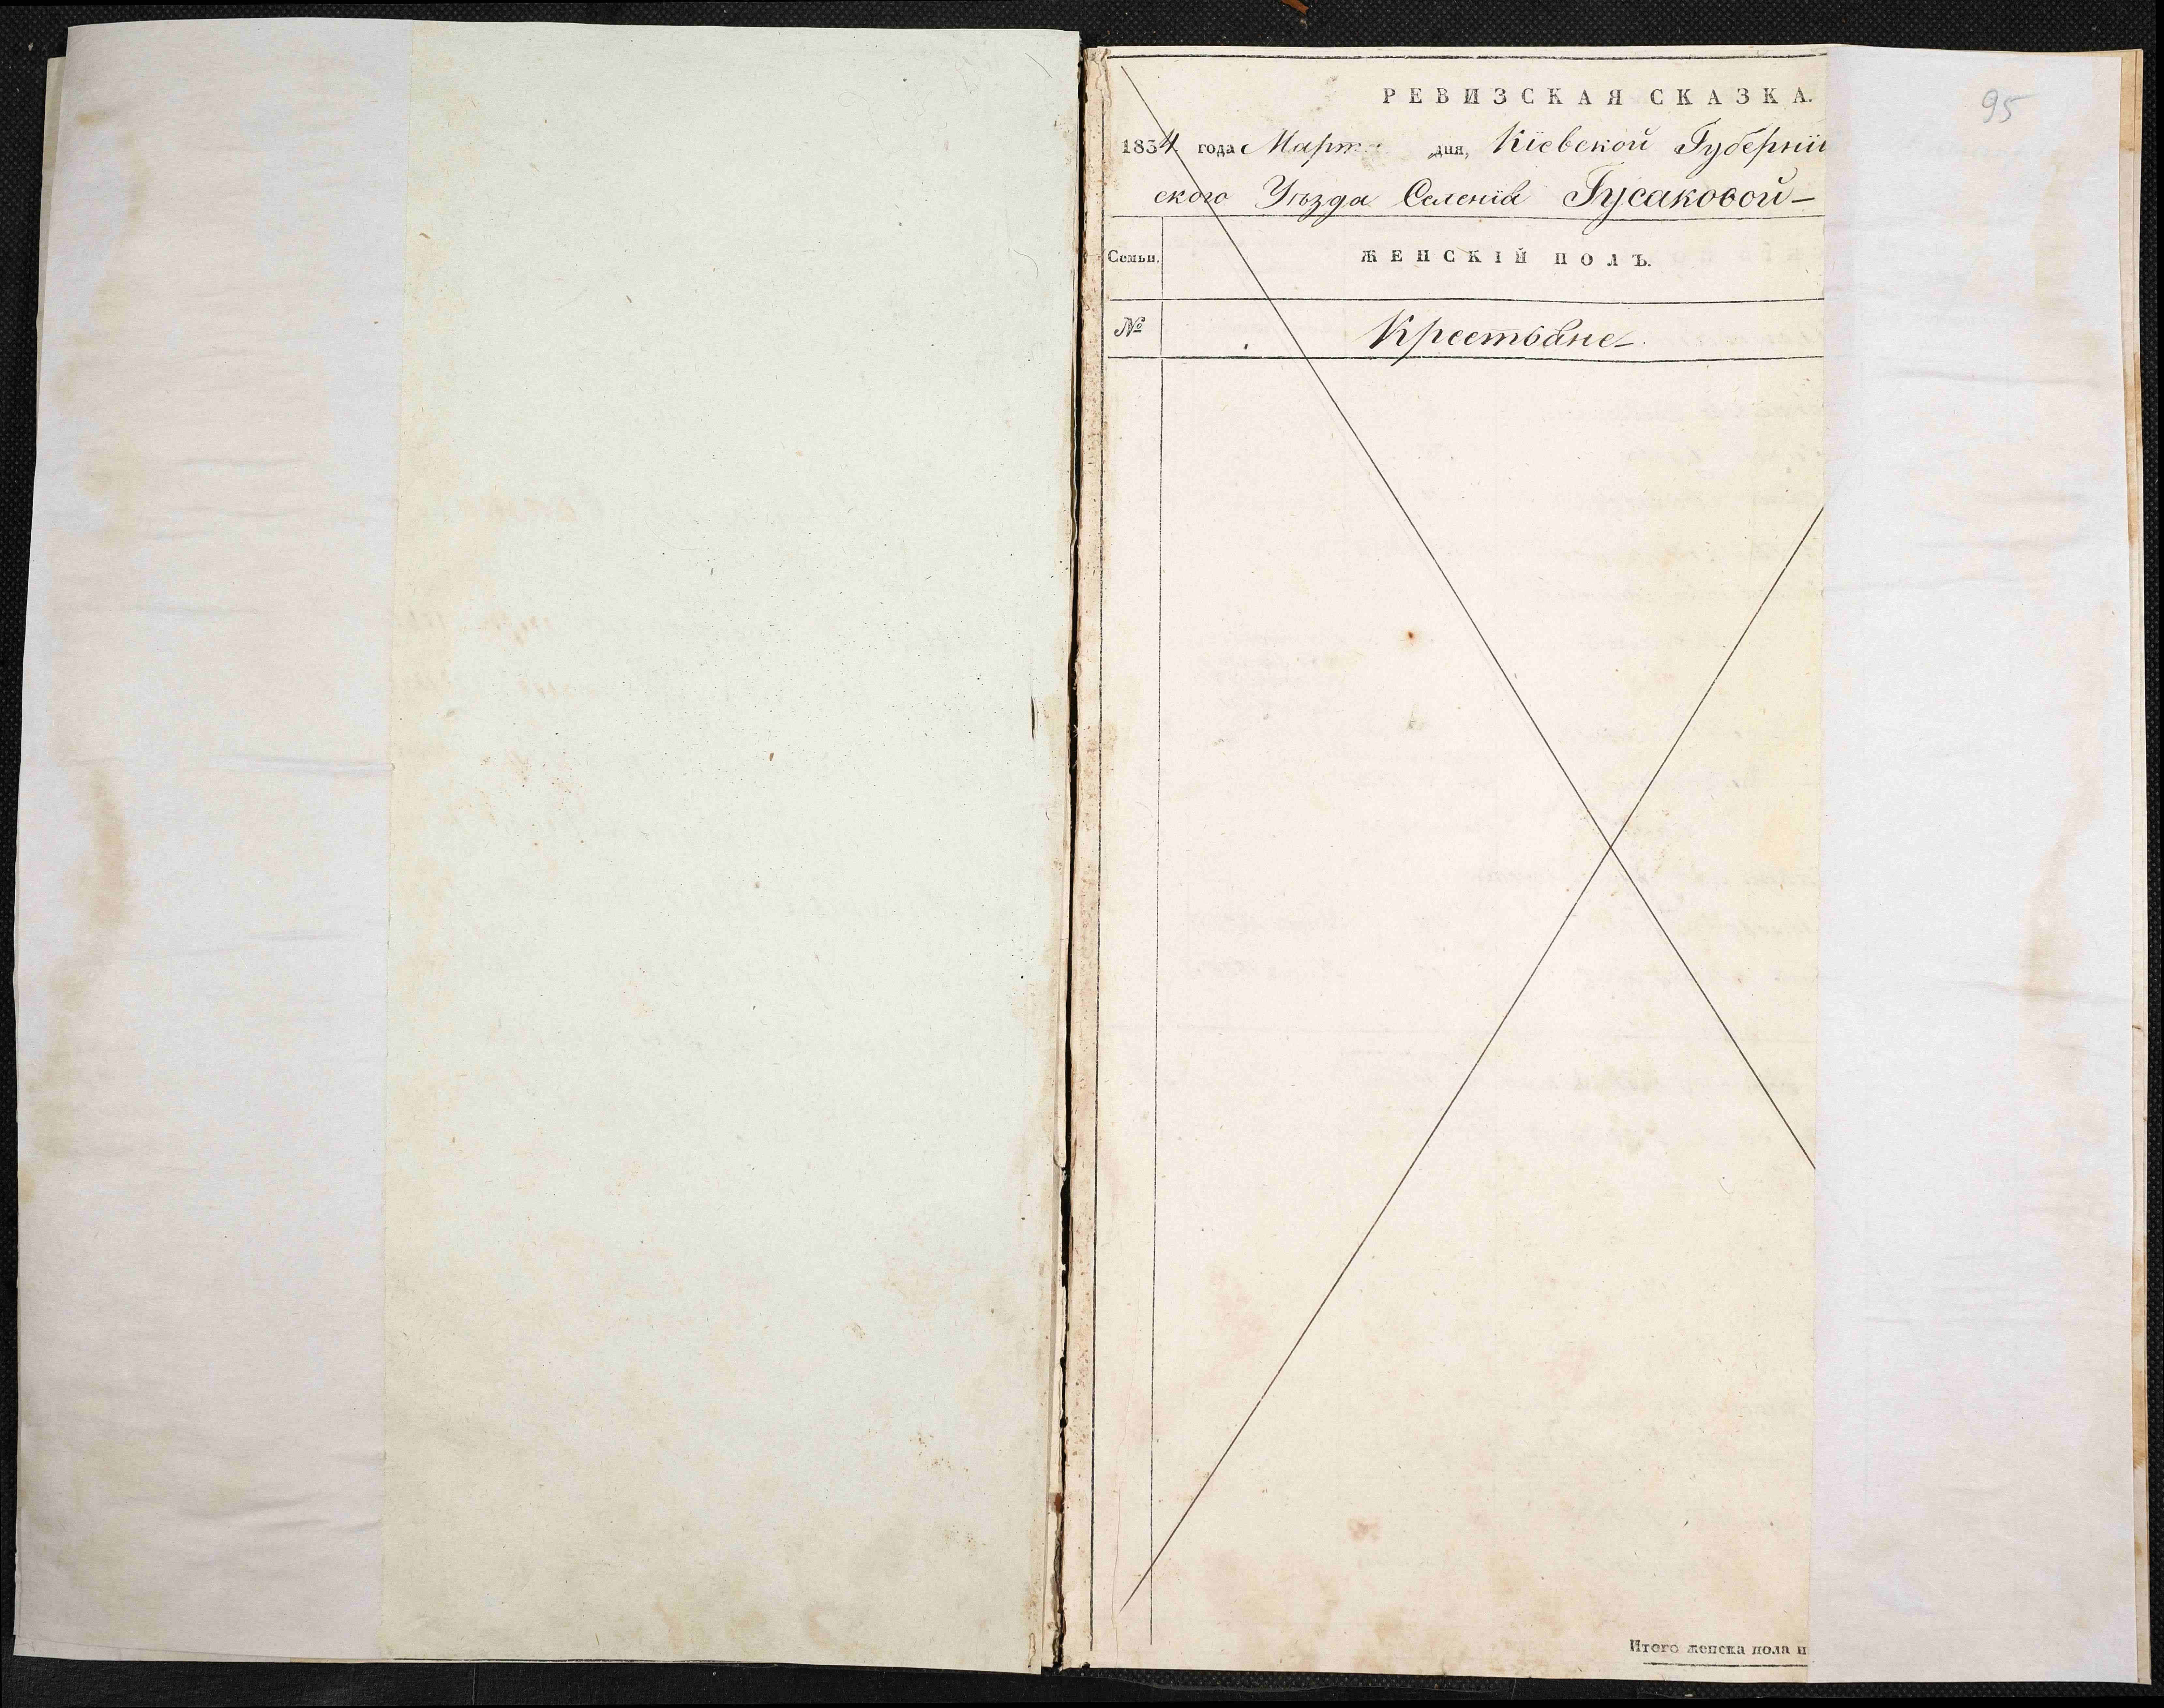 95
РЕВИЗСКАЯ СКАЗКА.
1834 года Марта дня, Кіевской Губерніи
ского Уѣзда Селенія Гусаковой
Семьи. ЖЕНСКІЙ ПОЛЪ.
№ Крестьяне
Итого женска пола н